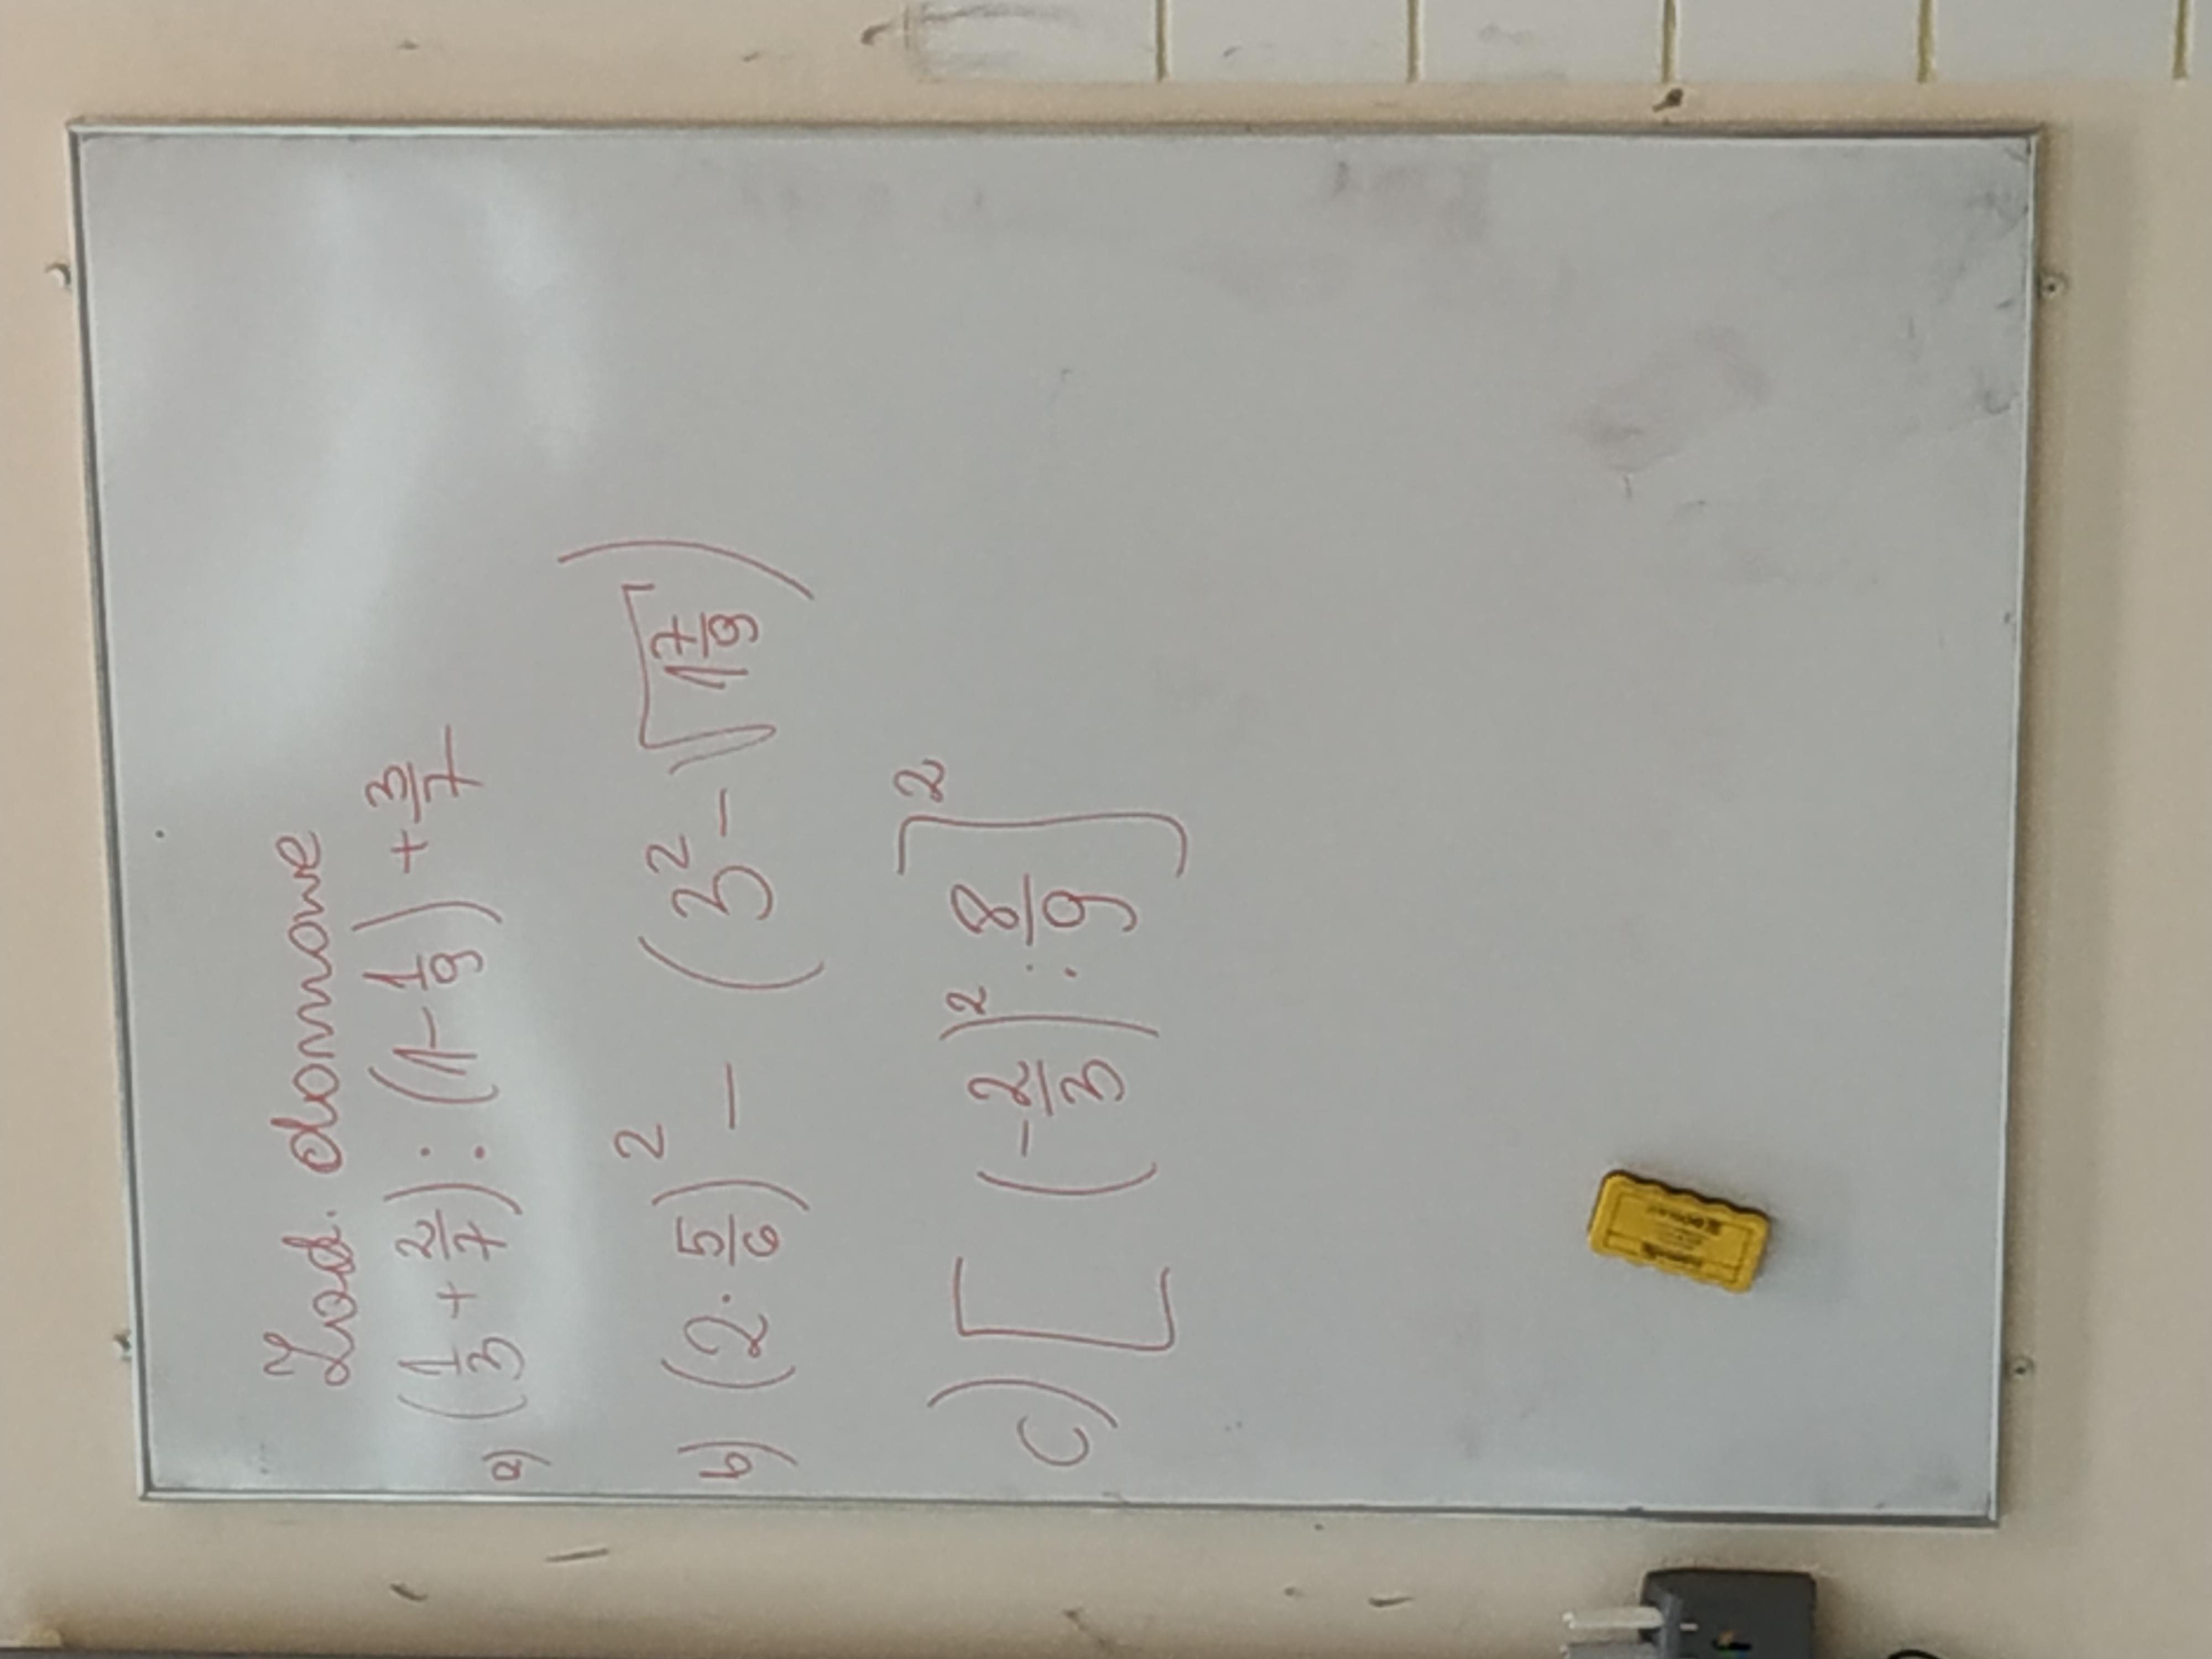 Zad. domowe
a) (1/3 + 2/7) : (1 - 1/9) + 3/7
b) (2 · 5/6)² - (3² - √1 7/9)
c) [(-2/3)² : 8/9]²